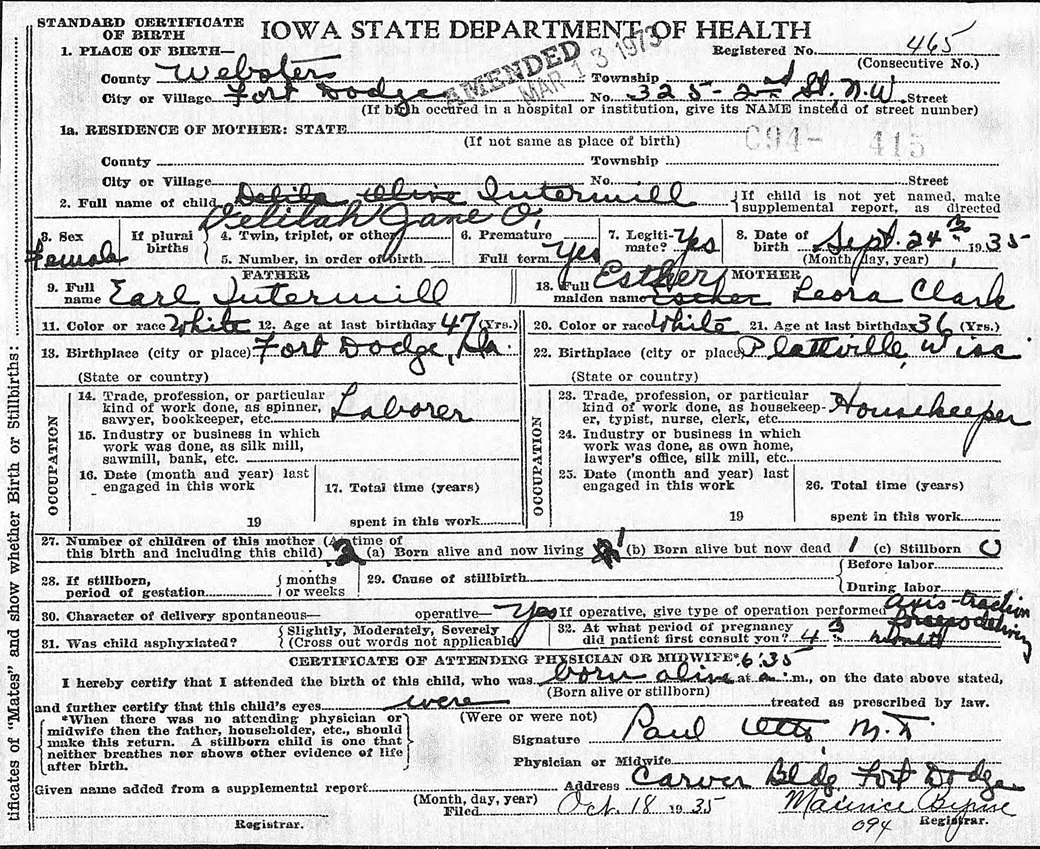 STANDARD CERTIFICATE OF BIRTH
IOWA STATE DEPARTMENT OF HEALTH
AMENDED
MAR 13 1973
1. PLACE OF BIRTH—
Registered No. 465
(Consecutive No.)
County Webster Township
City or Village Fort Dodge No. 325 - 2nd St. N.W. Street
(If birth occured in a hospital or institution, give its NAME instead of street number)
1a. RESIDENCE OF MOTHER: STATE
(If not same as place of birth)
C94- 415
County Township
City or Village No. Street
2. Full name of child Delila Olive Intermill {If child is not yet named, make supplemental report, as directed
Delilah Jane O.
3. Sex Female If plural births { 4. Twin, triplet, or other 5. Number, in order of birth 6. Premature Full term Yes 7. Legitimate? Yes 8. Date of birth Sept. 24th, 1935
(Month, day, year)
FATHER
9. Full name Earl Intermill
MOTHER
18. Full maiden name Esther Esther Leora Clark
11. Color or race White 12. Age at last birthday 47 (Yrs.)
20. Color or race White 21. Age at last birthday 36 (Yrs.)
13. Birthplace (city or place) Fort Dodge, Ia.
(State or country)
22. Birthplace (city or place) Plattville, Wisc
(State or country)
OCCUPATION
14. Trade, profession, or particular kind of work done, as spinner, sawyer, bookkeeper, etc. Laborer
15. Industry or business in which work was done, as silk mill, sawmill, bank, etc.
16. Date (month and year) last engaged in this work 19
17. Total time (years) spent in this work
OCCUPATION
23. Trade, profession, or particular kind of work done, as housekeeper, typist, nurse, clerk, etc. Housekeeper
24. Industry or business in which work was done, as own home, lawyer's office, silk mill, etc.
25. Date (month and year) last engaged in this work 19
26. Total time (years) spent in this work
27. Number of children of this mother (At time of this birth and including this child) 2 (a) Born alive and now living 1 (b) Born alive but now dead 1 (c) Stillborn 0
28. If stillborn, period of gestation { months or weeks 29. Cause of stillbirth { Before labor During labor
30. Character of delivery spontaneous— operative— Yes If operative, give type of operation performed axis-traction forceps delivery
31. Was child asphyxiated? {Slightly, Moderately, Severely (Cross out words not applicable) 32. At what period of pregnancy did patient first consult you? 4
CERTIFICATE OF ATTENDING PHYSICIAN OR MIDWIFE*
I hereby certify that I attended the birth of this child, who was born alive at 6:35 a. m., on the date above stated,
(Born alive or stillborn)
and further certify that this child's eyes were treated as prescribed by law.
(Were or were not)
*When there was no attending physician or midwife then the father, householder, etc., should make this return. A stillborn child is one that neither breathes nor shows other evidence of life after birth.
Signature Paul Otto, M.D.
Physician or Midwife
Address Carver Bldg Fort Dodge
Given name added from a supplemental report
(Month, day, year)
Filed Oct. 18 1935 Maurice Byrne
094 Registrar.
Registrar.
tificates of "Mates" and show whether Birth or Stillbirths: